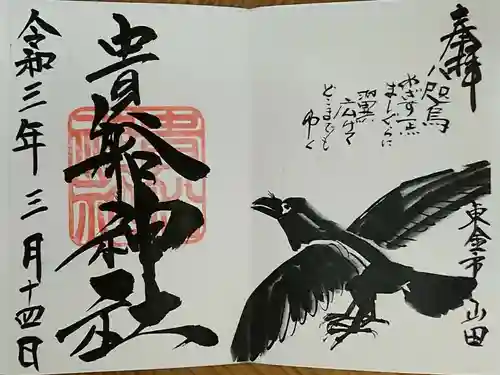 奉拝
八咫烏
めざす
ましぐらに
翼
広げて
どこまでも
ゆく
東金市山田
貴船神社
令和三年三月十四日